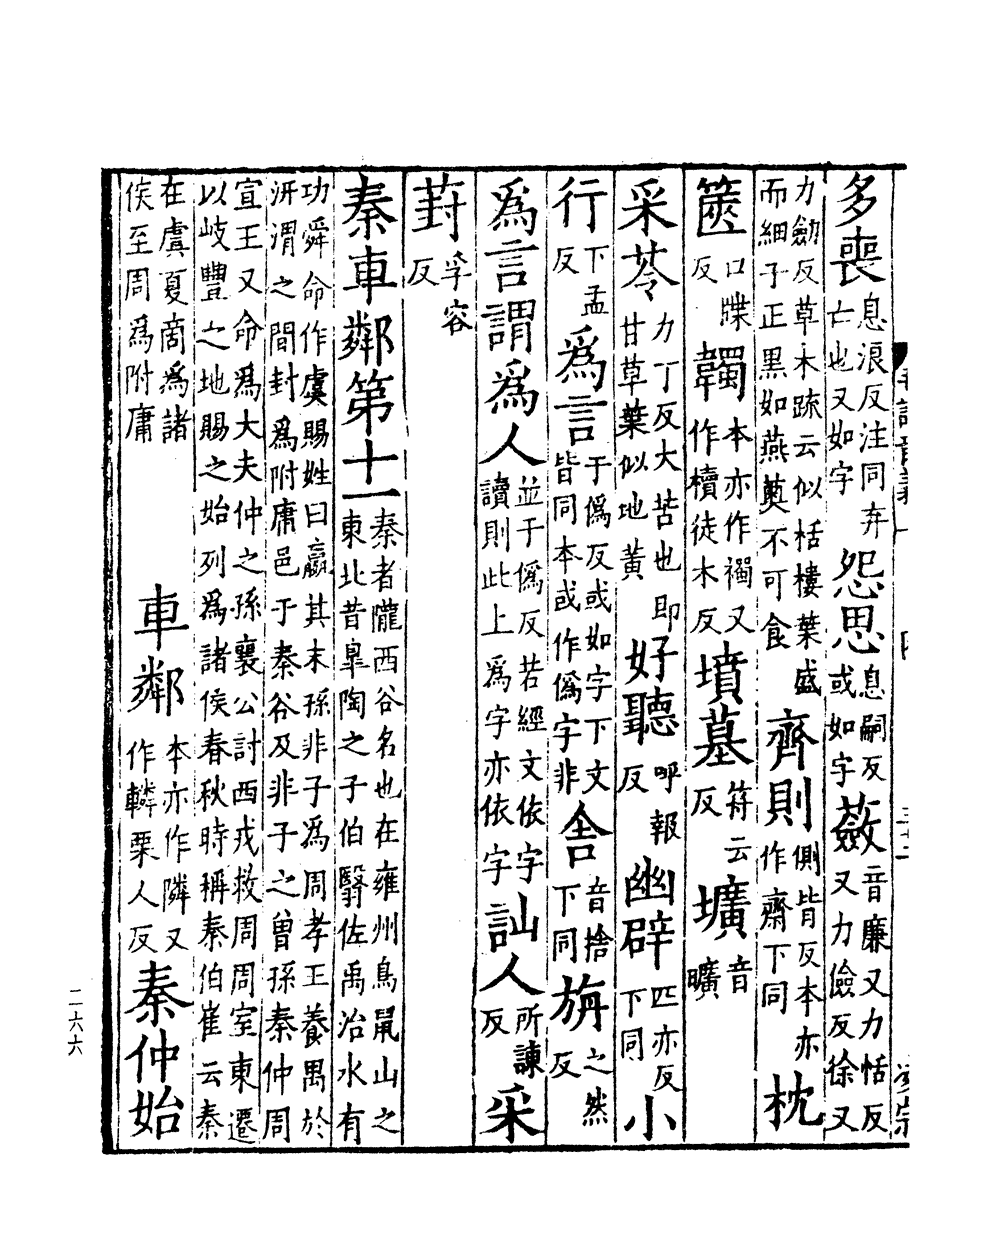 多喪息浪反注同弃亡也又如字怨思息嗣反或如字蘞音廉又力恬反又力儉反徐又
力劒反草木疏云似栝樓葉盛而細子正黑如燕薁不可食齊則側皆反本亦作齋下同枕
篋口牒反韣本亦作襡又作櫝徒木反墳墓符云反壙音曠
采苓力丁反大苦也即甘草葉似地黃好聽呼報反幽辟匹亦反下同小
行下孟反爲言于僞反或如字下文皆同本或作僞字非舍音捨下同旃之然反
爲言謂爲人並于僞反若經文依字讀則此上爲字亦依字訕人所諫反采
葑孚容反
秦車鄰第十一秦者隴西谷名也在雍州鳥鼠山之東北昔臯陶之子伯翳佐禹治水有
功舜命作虞賜姓曰嬴其末孫非子爲周孝王養馬於汧渭之間封爲附庸邑于秦谷及非子之曾孫秦仲周
宣王又命爲大夫仲之孫襄公討西戎救周周室東遷以岐豐之地賜之始列爲諸侯春秋時稱秦伯崔云秦
在虞夏商爲諸侯至周爲附庸　車鄰本亦作隣又作轔栗人反秦仲始
二六六